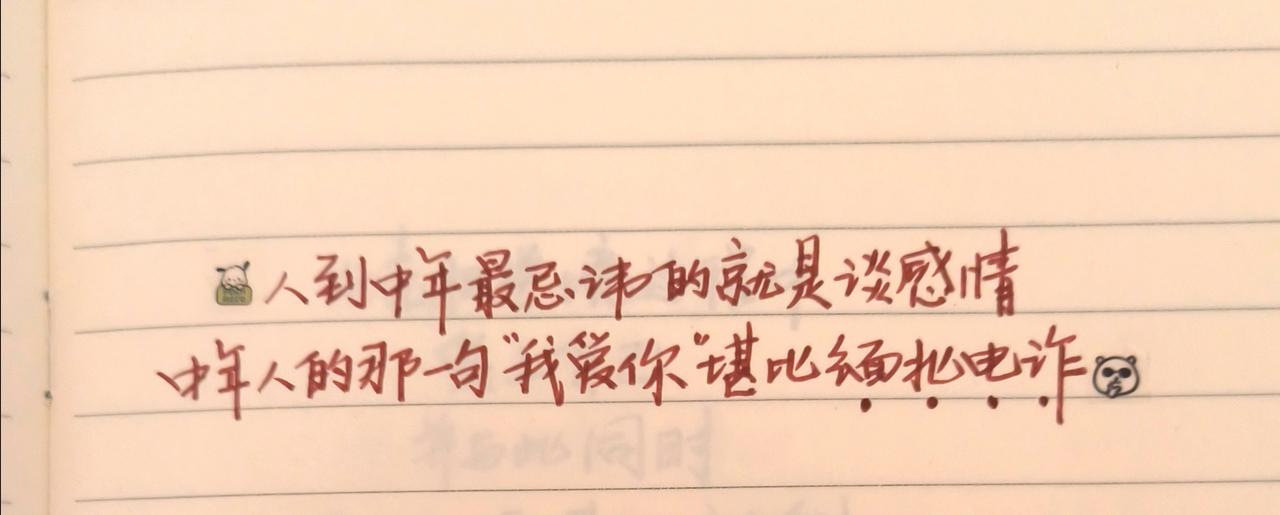 人到中年最忌讳的就是谈感情
中年人的那一句"我爱你"堪比缅北电诈